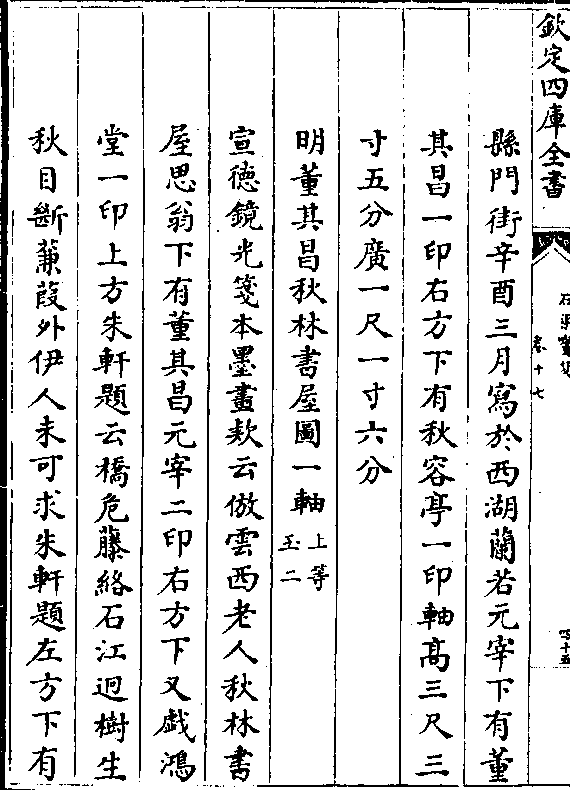 欽定四庫全書
卷十七
縣門街辛酉三月寫於西湖蘭若元宰下有董
其昌一印右方下有秋容亭一印軸髙三尺三
寸五分廣一尺一寸六分
明董其昌秋林書屋圖一軸 上等
玉二
宣德鏡光箋本墨畫欵云倣雲西老人秋林書
屋思翁下有董其昌元宰二印右方下又戯鴻
堂一印上方朱軒題云橋危藤絡石江迥樹生
秋目斷蒹葭外伊人未可求朱軒題左方下有